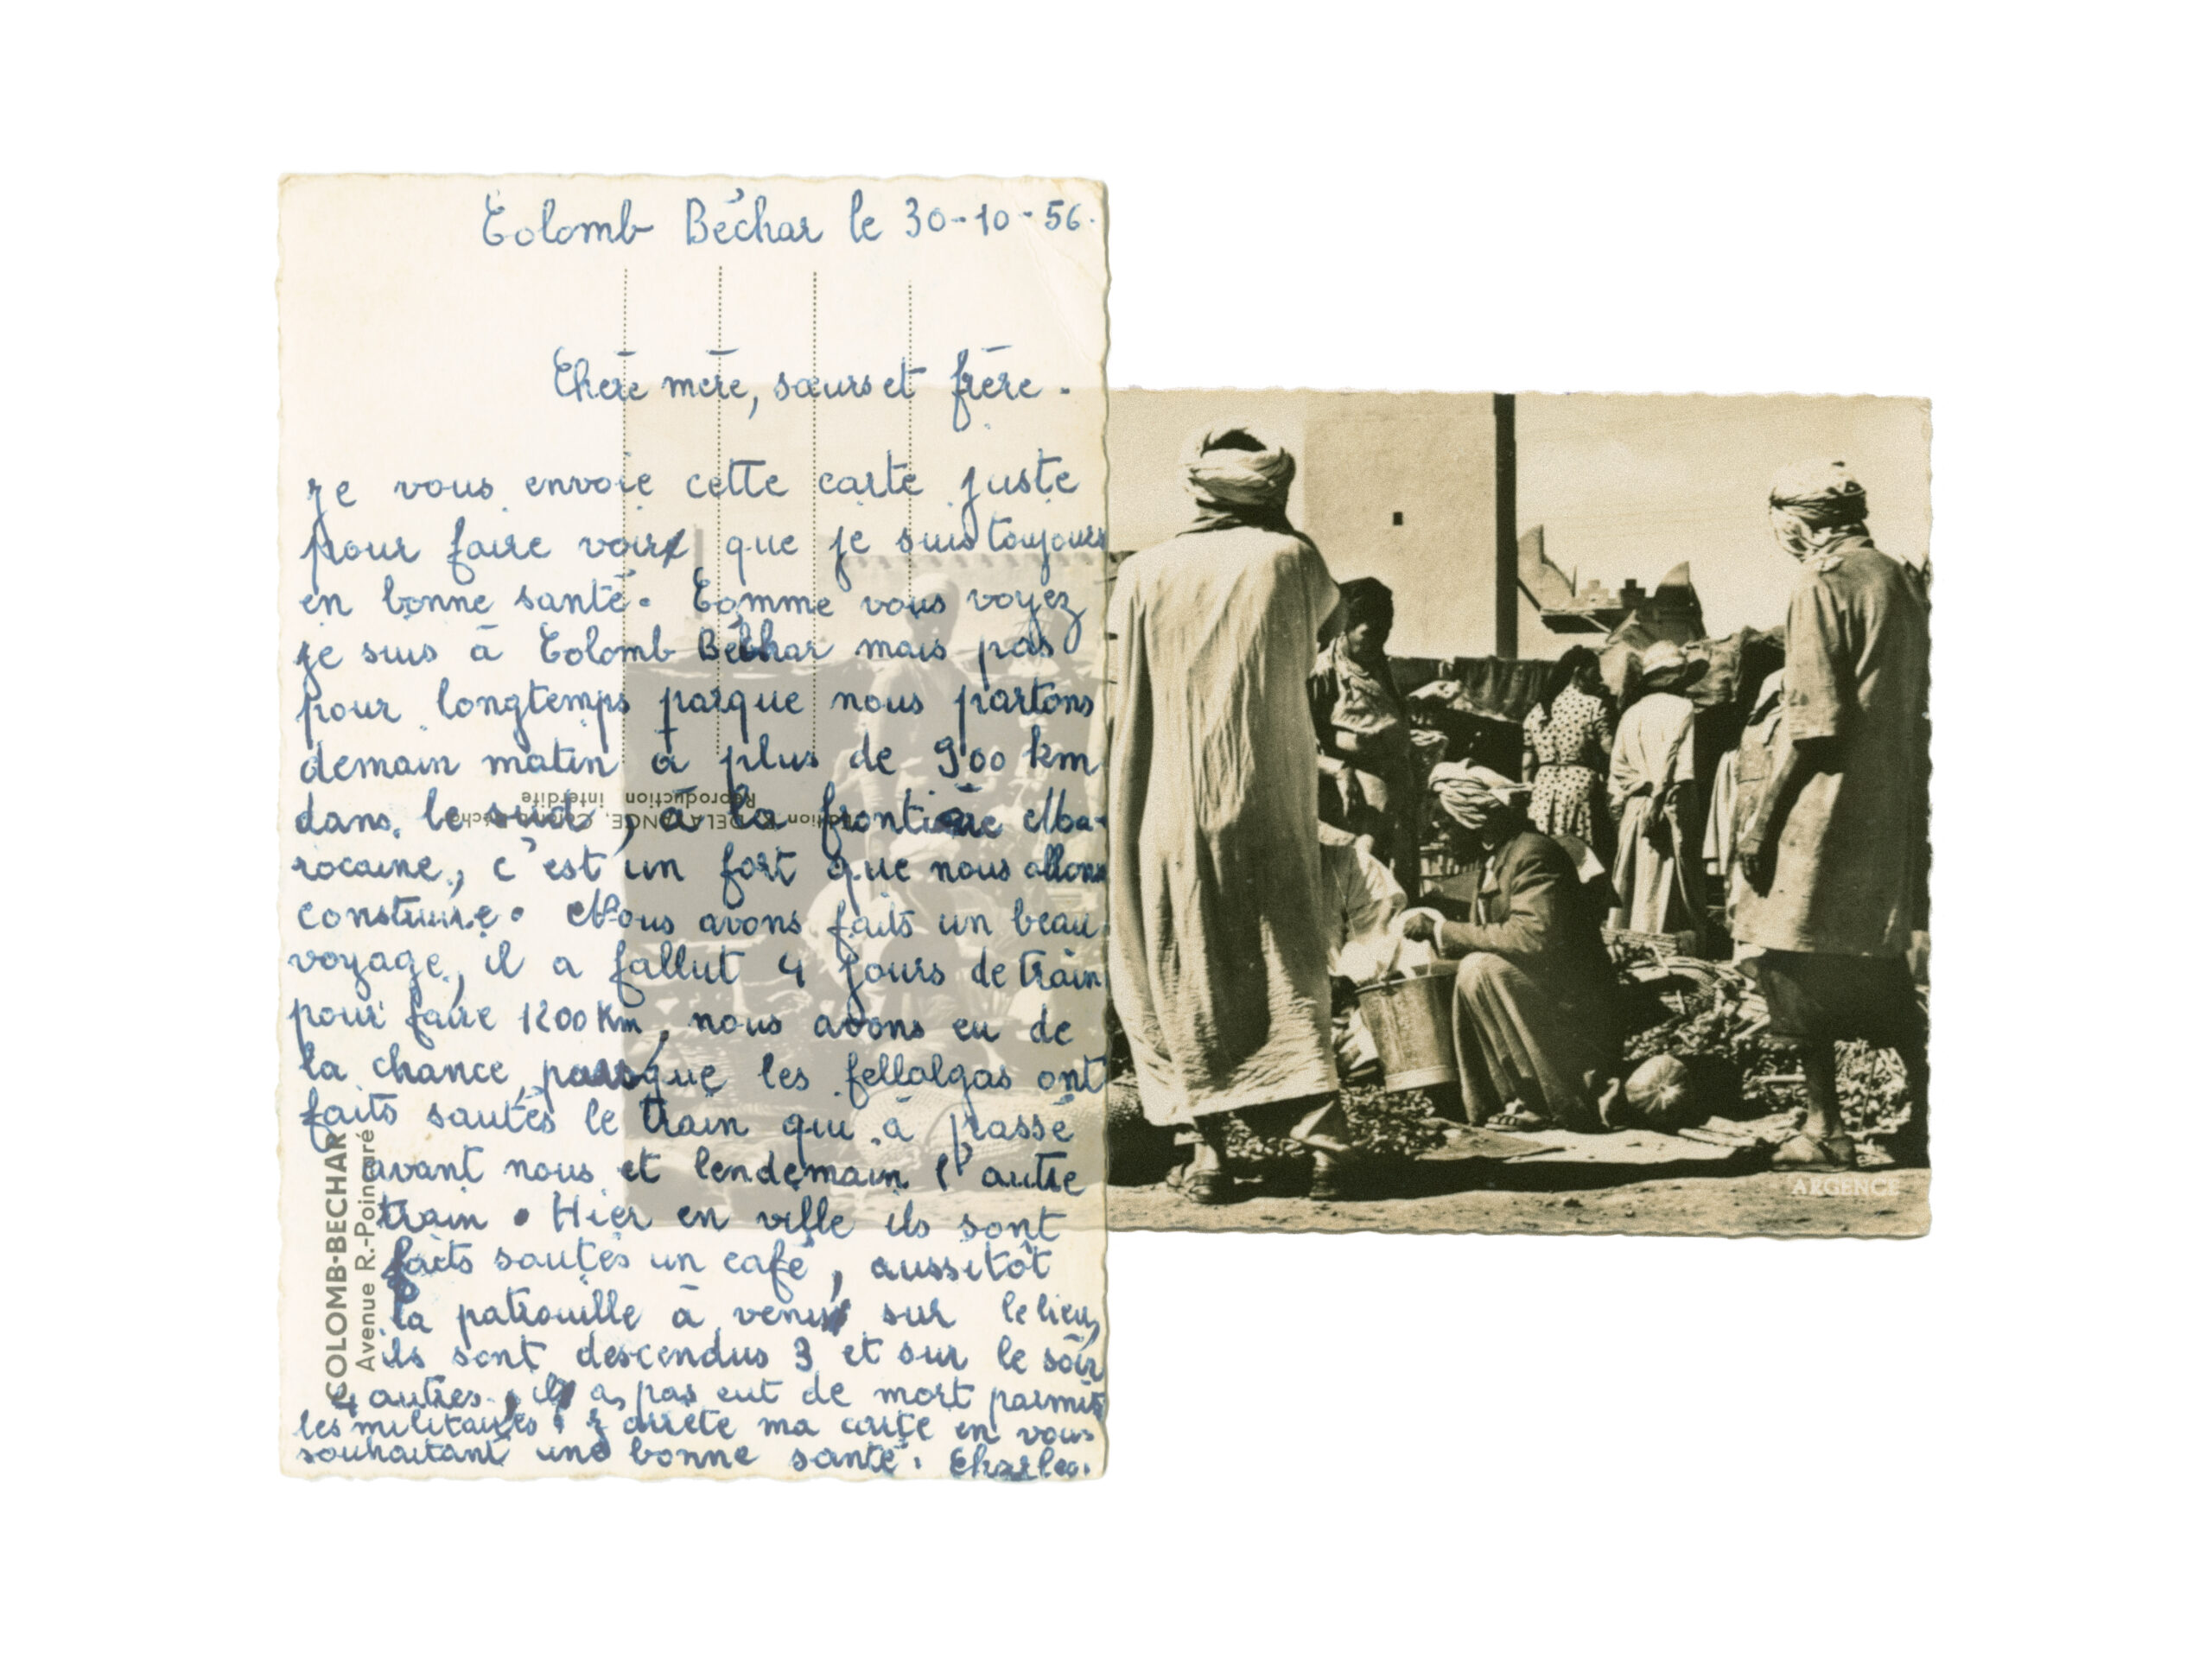 Colomb Béchar le 30-10-56.
Chère mère, sœurs et frère.
je vous envoie cette carte juste
pour faire voir que je suis toujours
en bonne santé. Comme vous voyez
je suis à Colomb Béchar mais pas
pour longtemps parque nous partons
demain matin à plus de 900 km
dans le sud, à la frontière Maro-
rocaine, c'est un fort que nous allons
construire. Nous avons faits un beau
voyage, il a fallut 4 jours de train
pour faire 1200 Km, nous avons eu de
la chance, parsque les fellalgas ont
faits sautés le train qui à passé
avant nous et lendemain l'autre
train. Hier en ville ils sont
faits sautés un café, aussitôt
la patrouille à venu sur le lieu,
ils sont descendus 3 et sur le soir
4 autres, il a pas eut de mort parmit
les militaires. j'arrête ma carte en vous
souhaitant une bonne santé. Charles.
Reproduction interdite
COLOMB-BECHAR
Avenue R.-Poincaré
ARGENCE